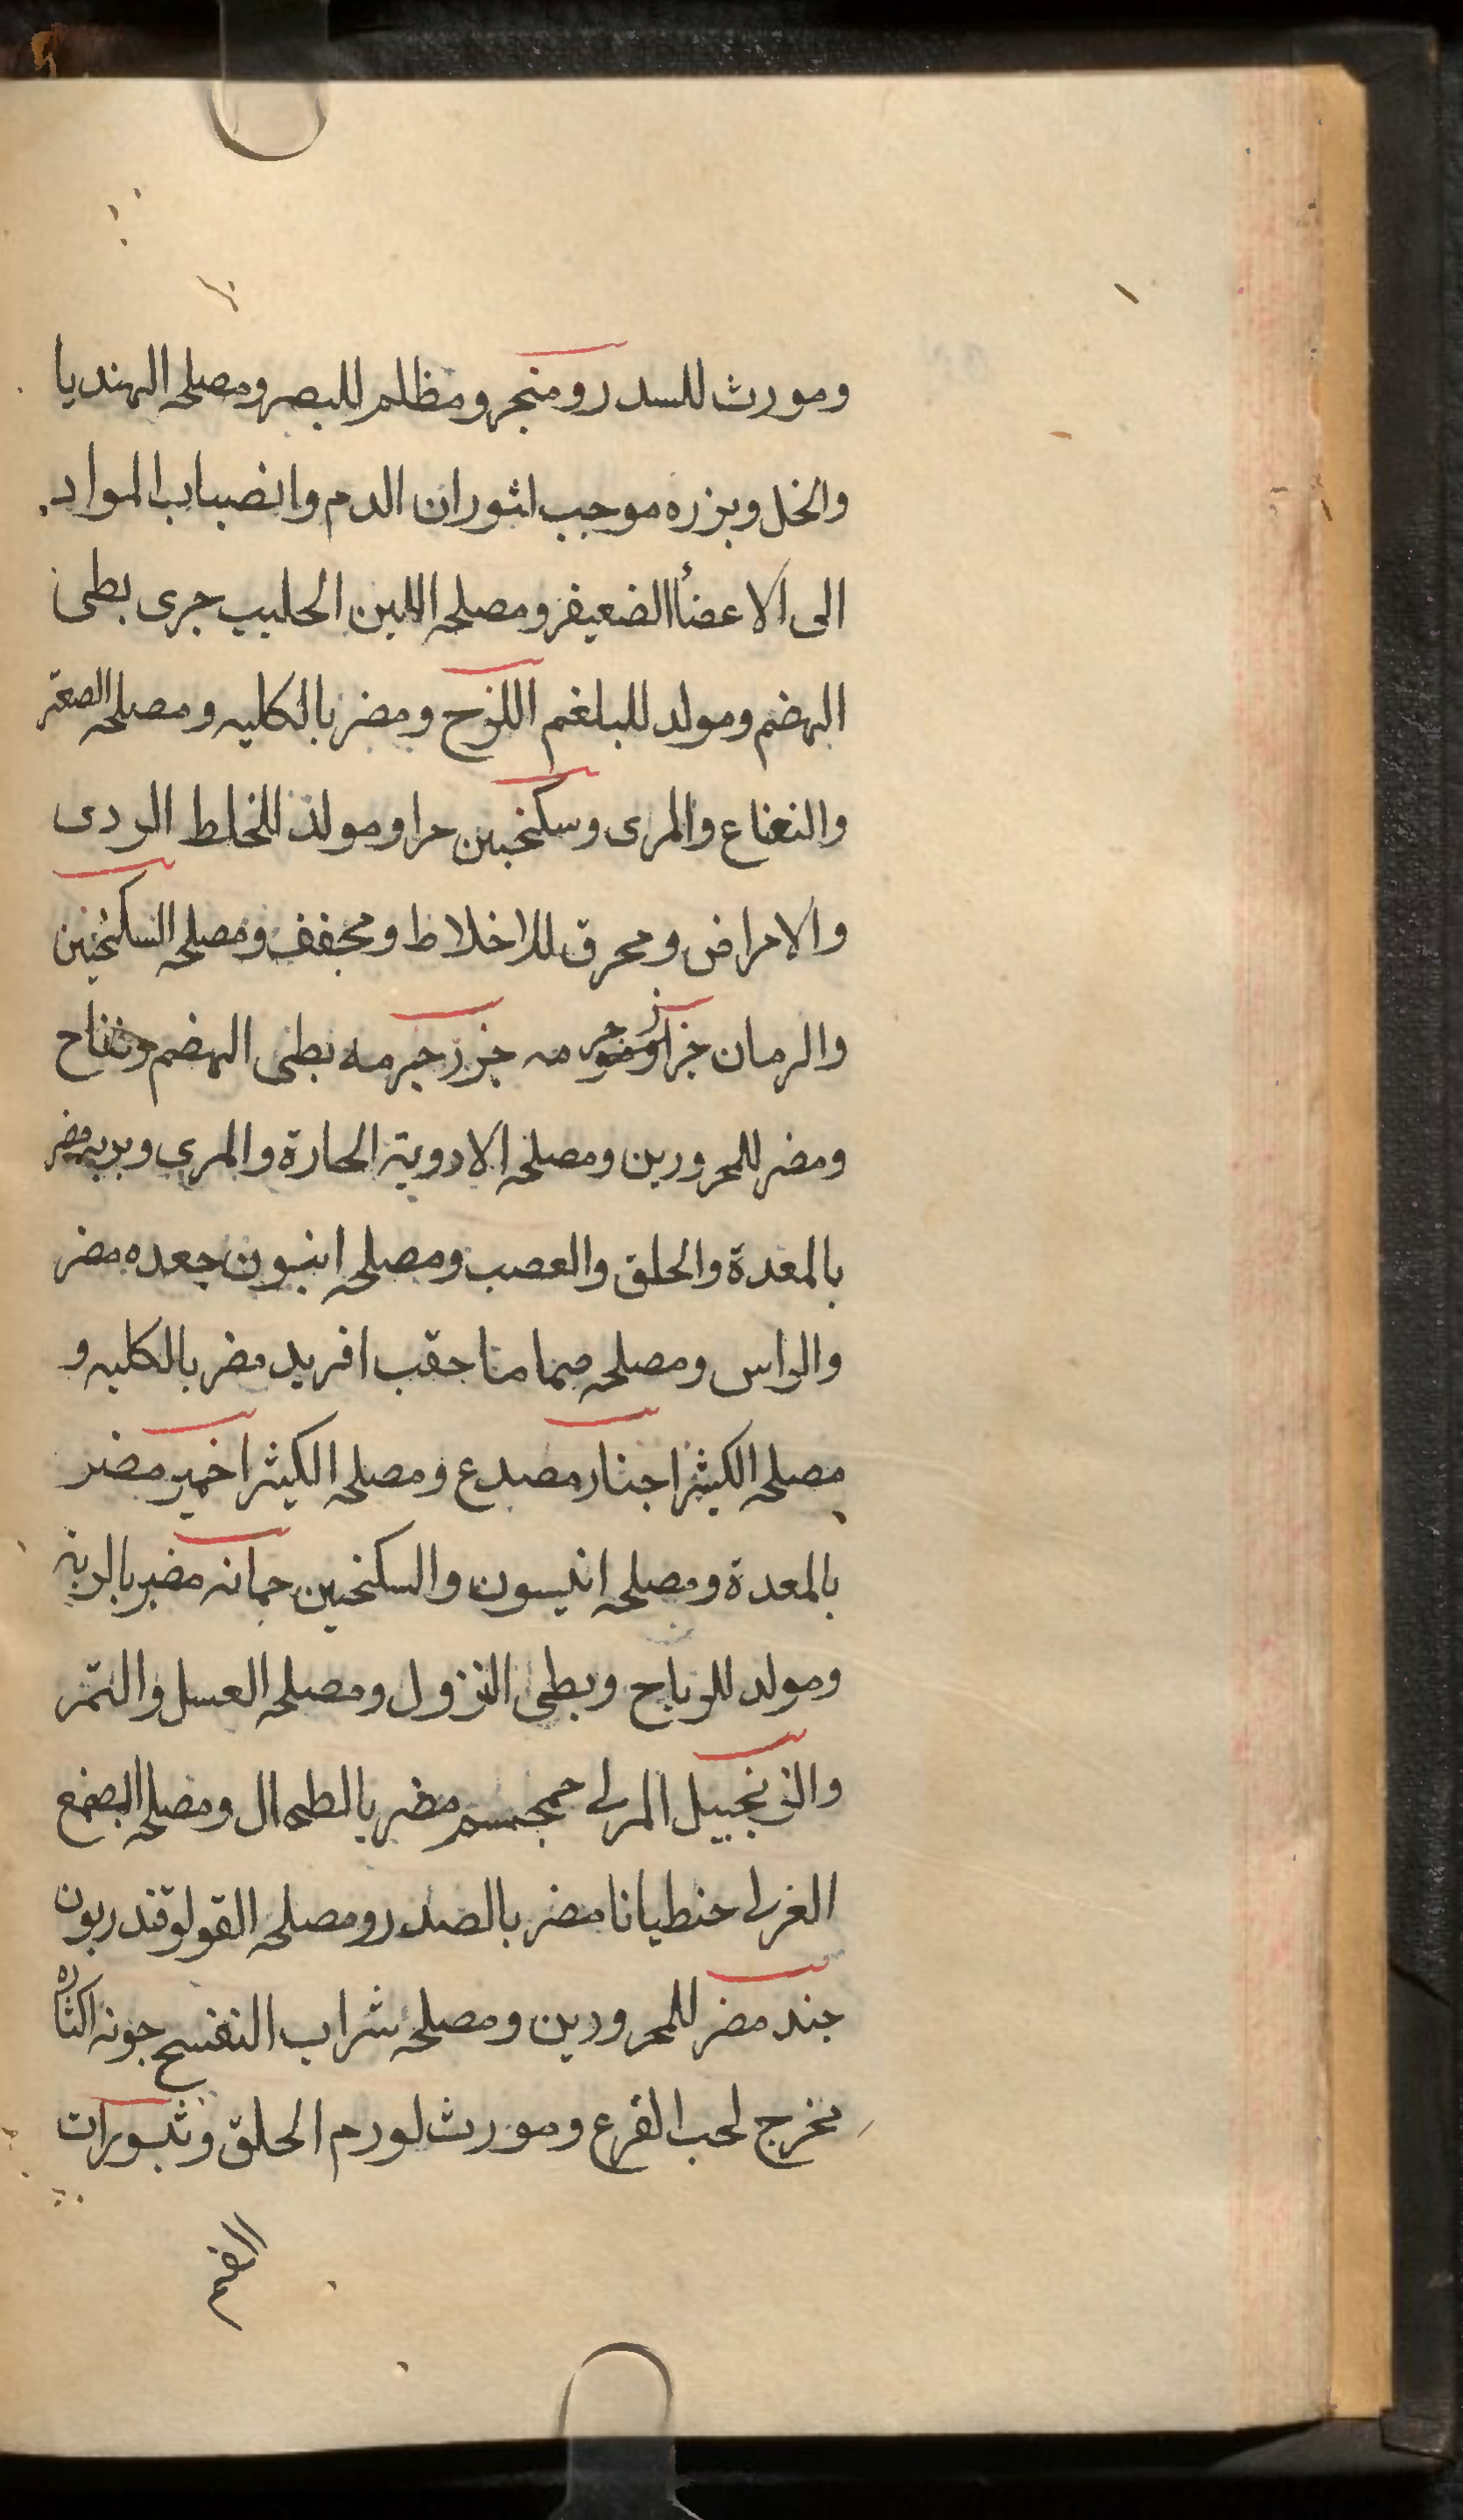 ومورث للسدر ومنجر ومظلم للبصر ومصلحه الهنديا
والخل وبزره موجب لثوران الدم وانصباب المواد
الى الاعضأ الضعيفر ومصلحه اللبن الحليب جرى بطى
الهضم ومولد للبلغم اللزج ومضر بالكليه ومصلحه الصعتر
والنعناع والمرى وسكنجبين حراو مولد للخلط الردى
والامراض ومحرق للاخلاط ومجفف ومصلحه السكنجبين
والرمان جزر جرمه بطى الهضم ونفاح
ومضر للمحرورين ومصلحه الادوية الحارة والمرى وبريه مضر
بالمعدة والحلق والعصب ومصلحه انيسون جعده مضر
والراس ومصلحه مما منا حقب افريد مضر بالكليه و
مصلحه الكيثرا جنار مصدع ومصلحه الكيثرا خمير مضر
بالمعدة ومصلحه انيسون والسكنجبين جمانه مضر بالريه
ومولد للرياح وبطى النزول ومصلحه العسل والتمر
والزنجبيل المربى حمجسم مضر بالطحال ومصلحه الصمغ
الغربى جنطيانا مضر بالصدر ومصلحه القولوقندريون
جند مضر للمحرورين ومصلحه شراب النفسج جونه اكثاره
مخرج لحب القرع ومورث لورم الحلق وثبورات
الفم